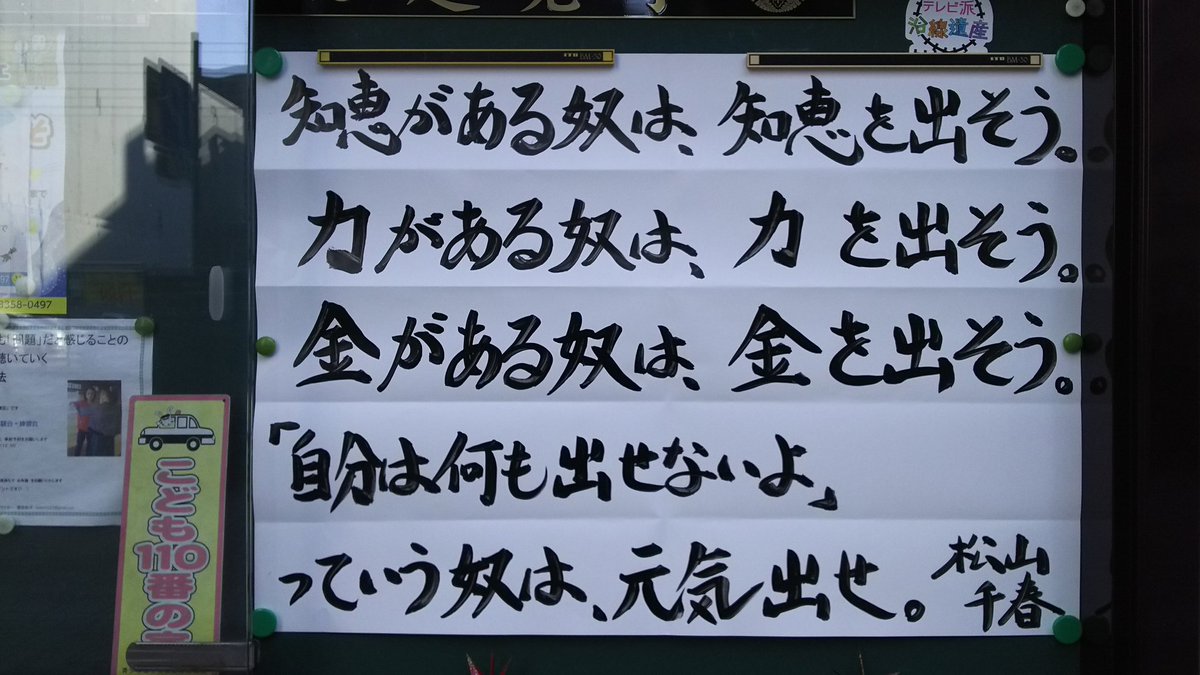 テレビ派
沿線遺産
知恵がある奴は、知恵を出そう。
力がある奴は、力を出そう。
金がある奴は、金を出そう。
「自分は何も出せないよ」
っていう奴は、元気出せ。
松山
千春
8358-0497
だと感じることの
聴いていく
法
こども110番の